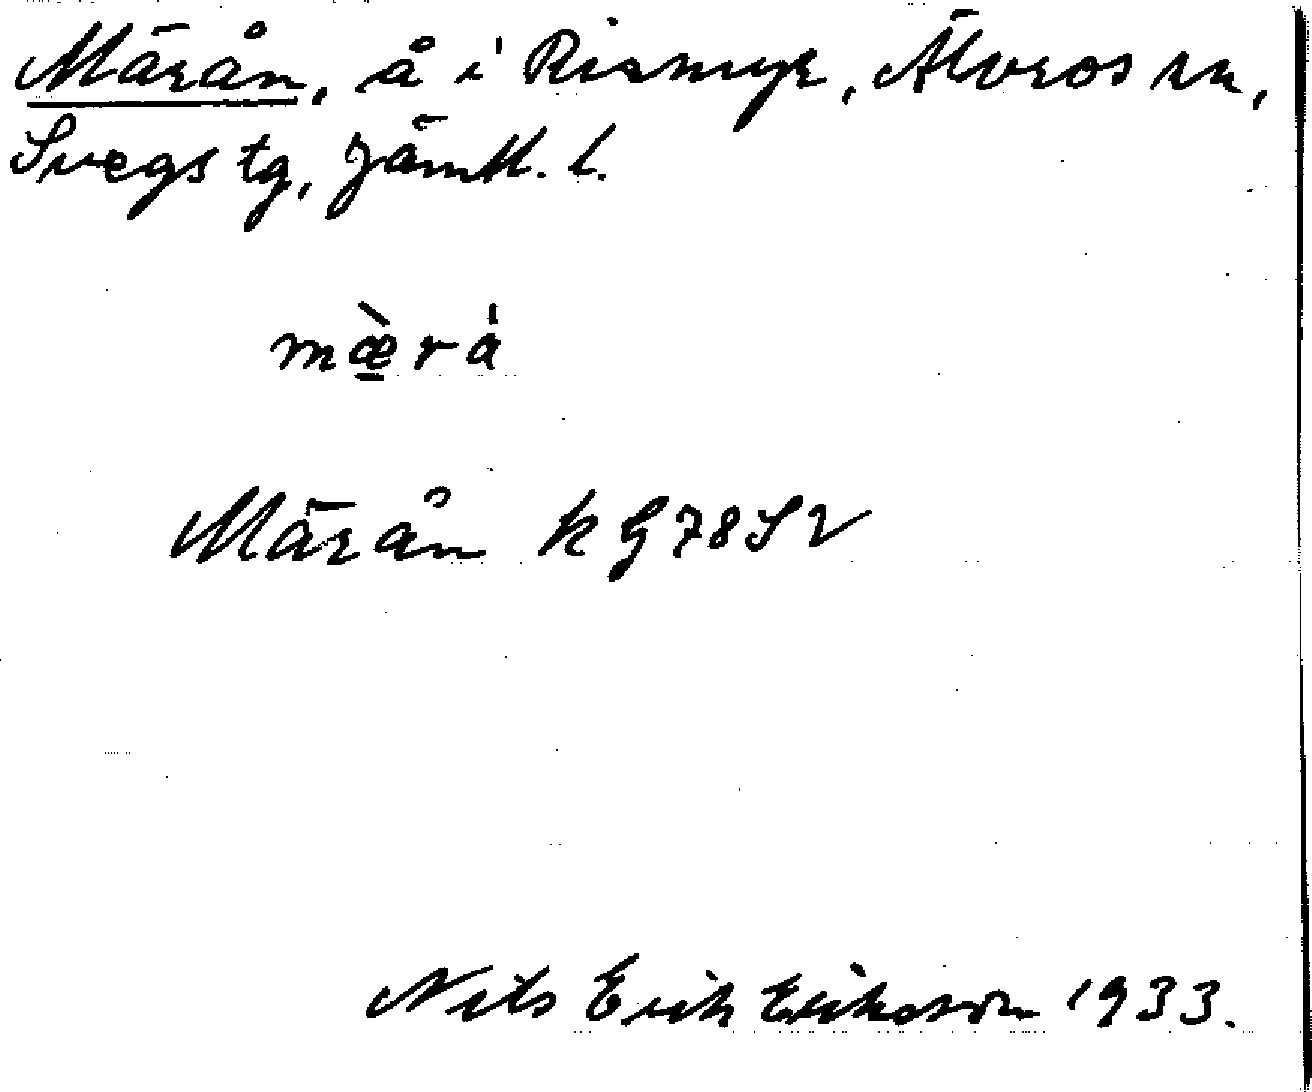 Märån, å i Rismyr, Älvros sn,
Svegs tg, Jämtl. l.
mæ̱̀rå
Märån k G78SV
Nils Erik Eriksson 1933.